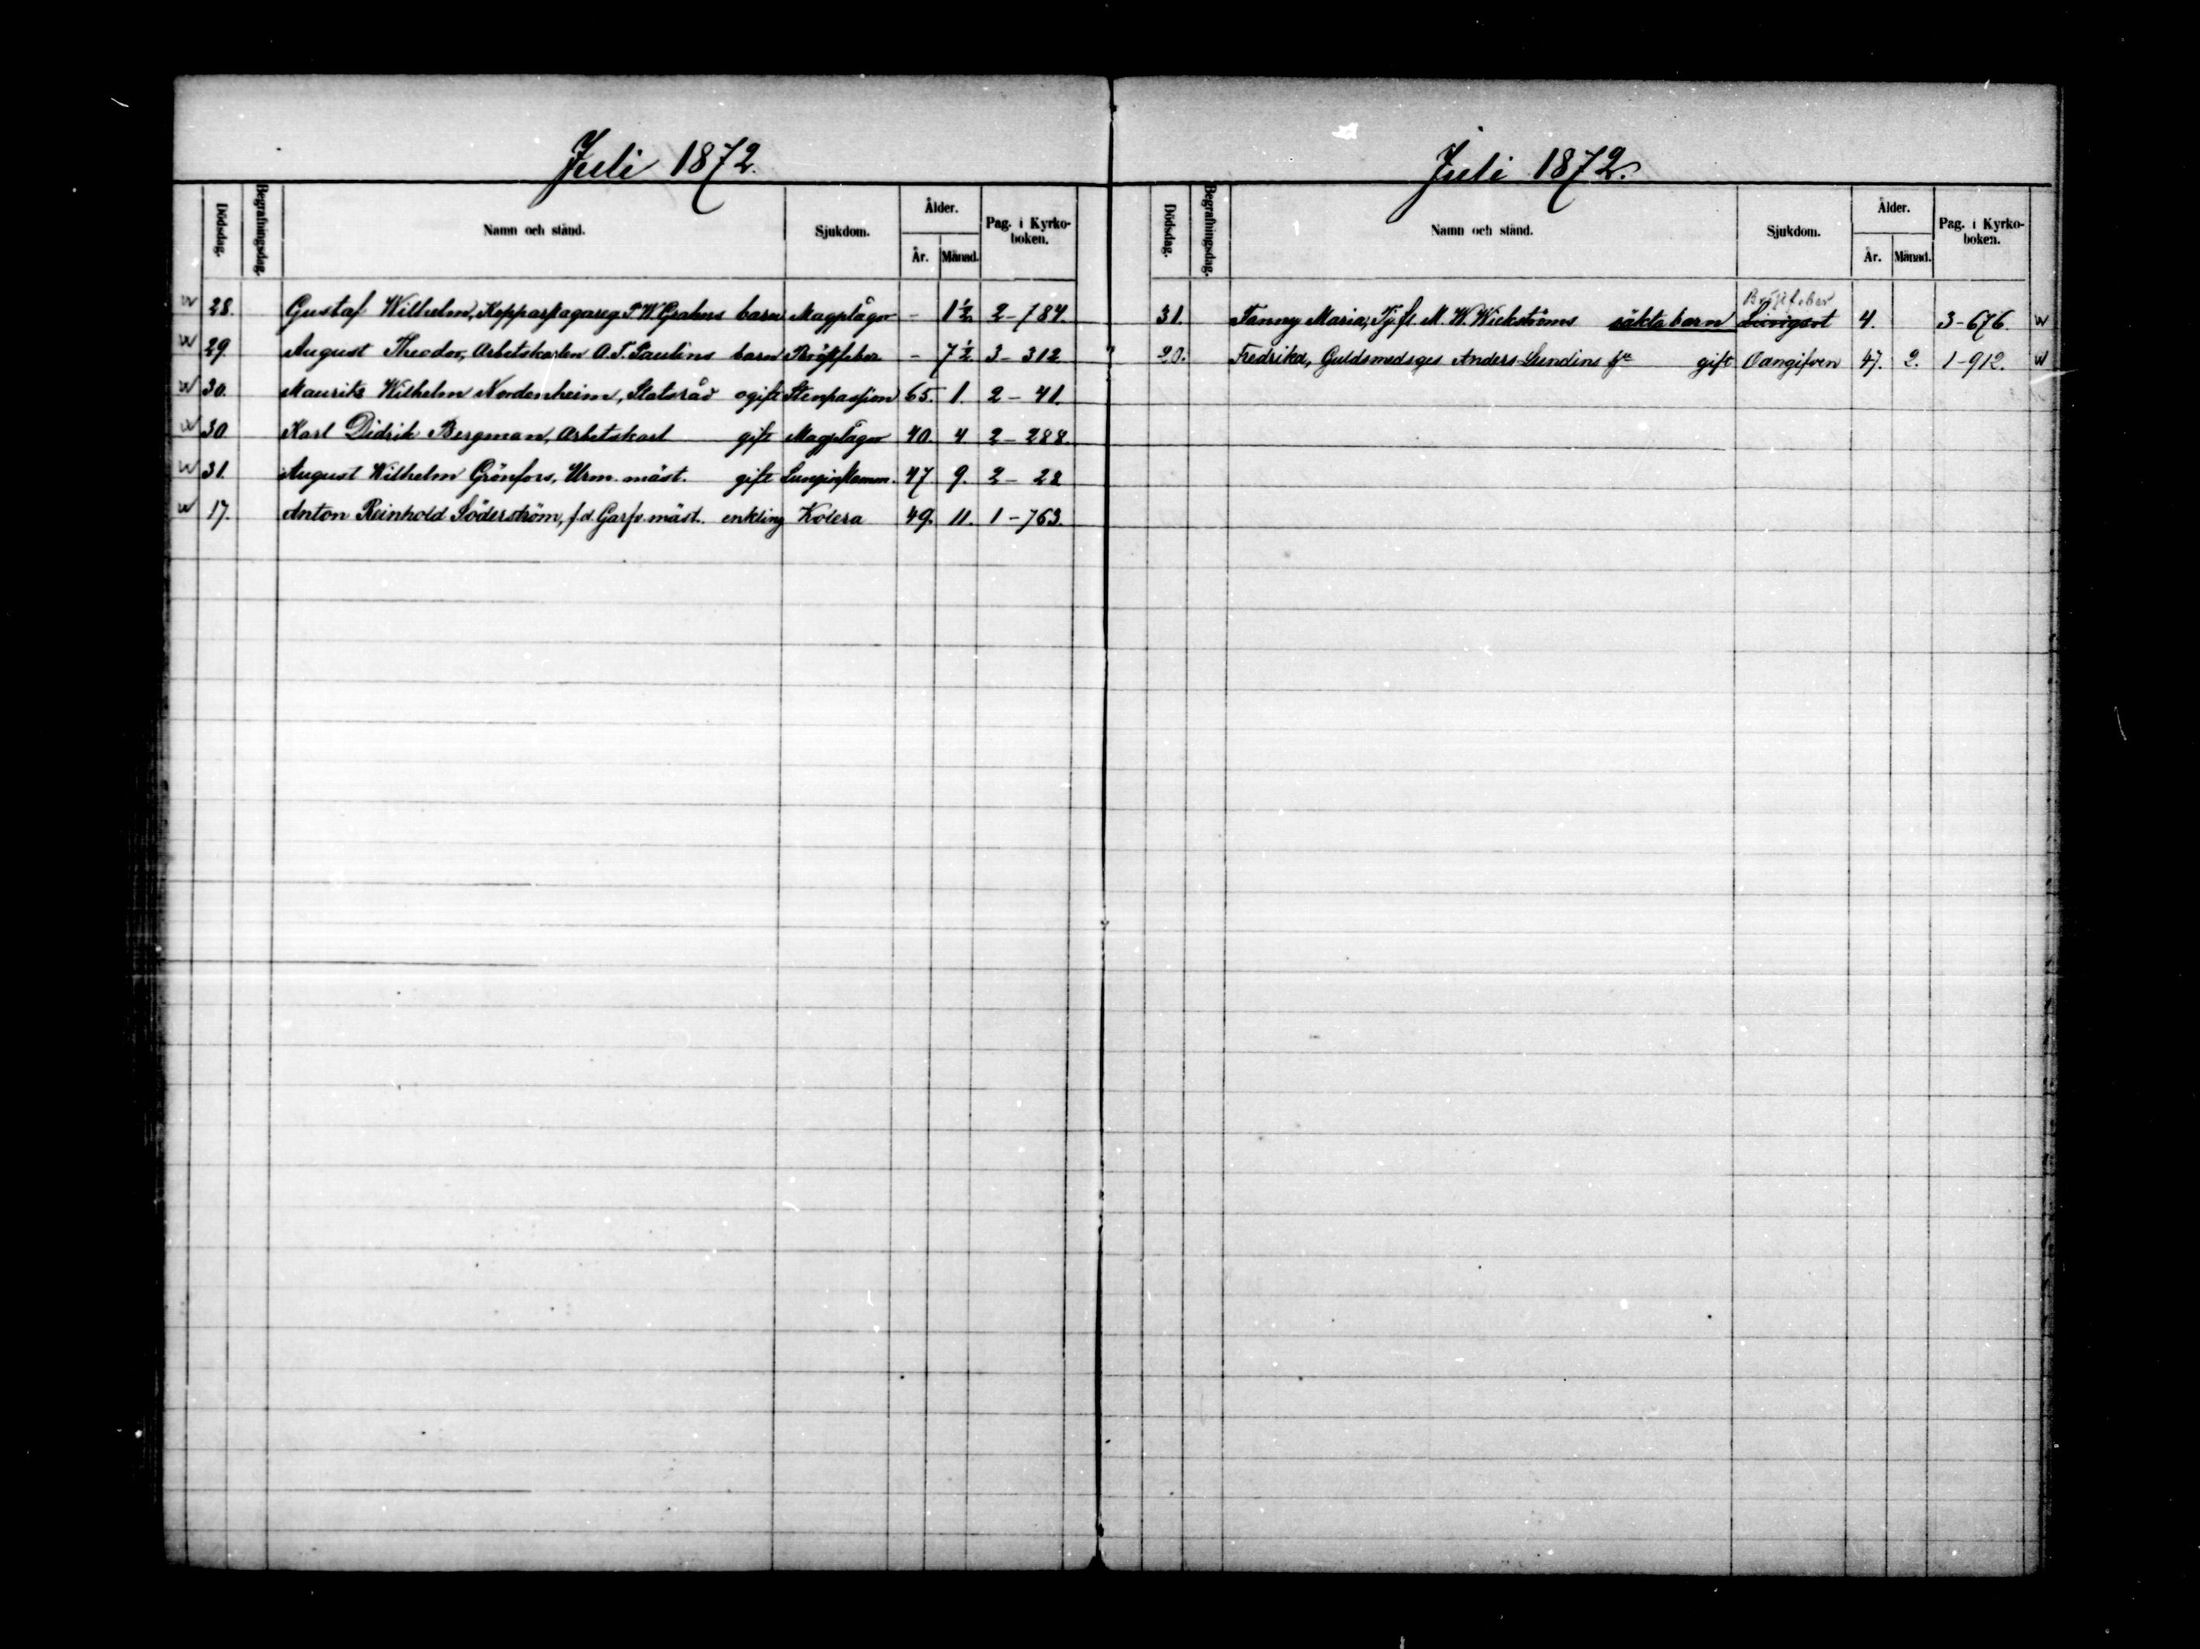 Juli 1872.
Dödsdag. Begrafningsdag. Namn och stånd. Sjukdom. Ålder. År. Månad. Pag. i Kyrko-boken.
w 28. Gustaf Wilhelm, barn Magplågor - 1½ 2-784.
w 29. August Theodor, Arbetskarlen A. T. Paulins barn Bröstfeber - 7½ 3-312
w 30. Maurits Wilhelm Nordenheim, Statsråd ogift Stenpassion 65. 1. 2-41.
w 30. Karl Didrik Bergman, Arbetskarl gift Magplågor 40. 4 2-288.
w 31. August Wilhelm Grönfors, Urm. mäst. gift Lunginflamm. 47 9. 2-28
w 17. Anton Reinhold Söderström, f.d. Garfv. mäst. enkling Kolera 49. 11. 1-763.
Juli 1872.
Dödsdag. Begrafningsdag. Namn och stånd. Sjukdom. Ålder. År. Månad. Pag. i Kyrko-boken.
Bröstfeber
31. Fanny Maria, Tj. fl. M. W. Wickströms oäkta barn 4. 3-676 w
20. Fredrika, Guldsmedsges Anders Lundins gift Oangifven 47. 2. 1-912. w